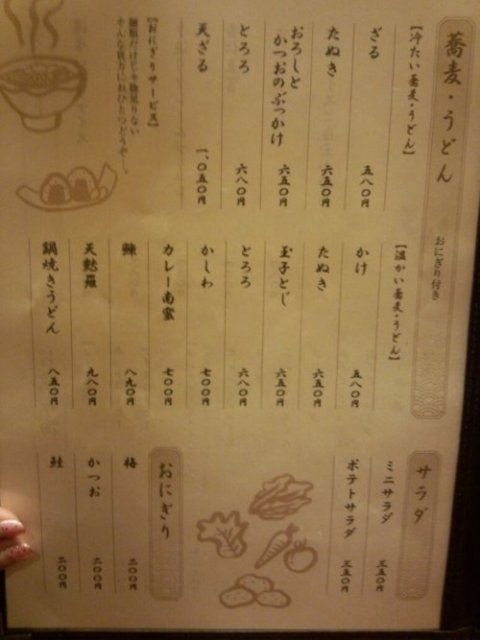 蕎麦・うどん
おにぎり付き
【冷たい蕎麦・うどん】
ざる 五八〇円
たぬき 六五〇円
おろしと
かつおのぶっかけ 六五〇円
とろろ 六八〇円
天ざる 一、〇五〇円
【おにぎりサービス】
麺類だけじゃ物足りない
そんな貴方におひとつどうぞ…。
【温かい蕎麦・うどん】
かけ 五八〇円
たぬき 六五〇円
玉子とじ 六五〇円
とろろ 六八〇円
かしわ 七〇〇円
カレー南蛮 七〇〇円
鰊 八九〇円
天麩羅 九八〇円
鍋焼きうどん 八五〇円
サラダ
ミニサラダ 三五〇円
ポテトサラダ 三五〇円
おにぎり
梅 二〇〇円
かつお 二〇〇円
鮭 二〇〇円